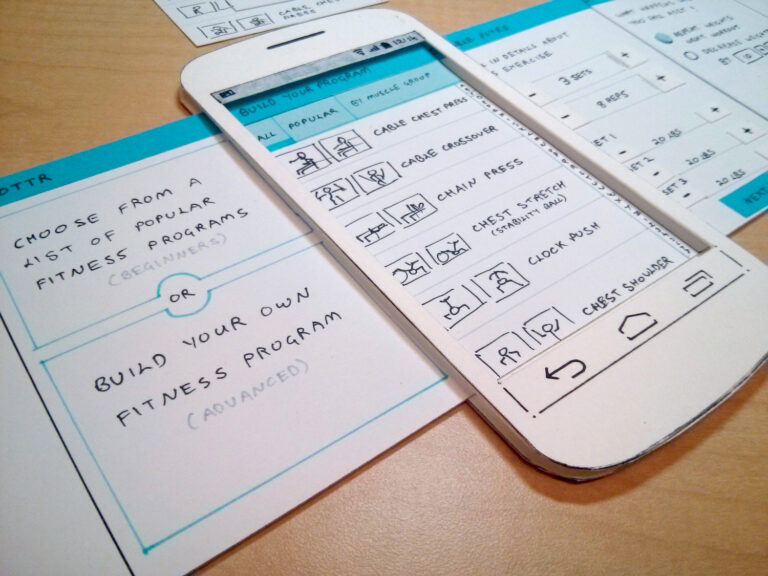 OTTR
CHOOSE FROM A
LIST OF POPULAR
FITNESS PROGRAMS
(BEGINNERS)
OR
BUILD YOUR OWN
FITNESS PROGRAM
(ADVANCED)
12:14
BUILD YOUR PROGRAM
ALL
POPULAR
BY MUSCLE GROUP
CABLE CHEST PRESS
CABLE CROSSOVER
CHAIN PRESS
CHEST STRETCH
(STABILITY BALL)
CLOCK PUSH
CHEST SHOULDER
IN DETAILS ABOUT
EXERCISE
- 3 SETS +
- 8 REPS +
SET 1
- 20 LBS +
SET 2
- 20 LBS +
SET 3
- 20 LBS
NEXT
YOU
REPEAT WEIGHTS
NEXT WORKOUT
DECREASE WEIGHT
BY
CABLE